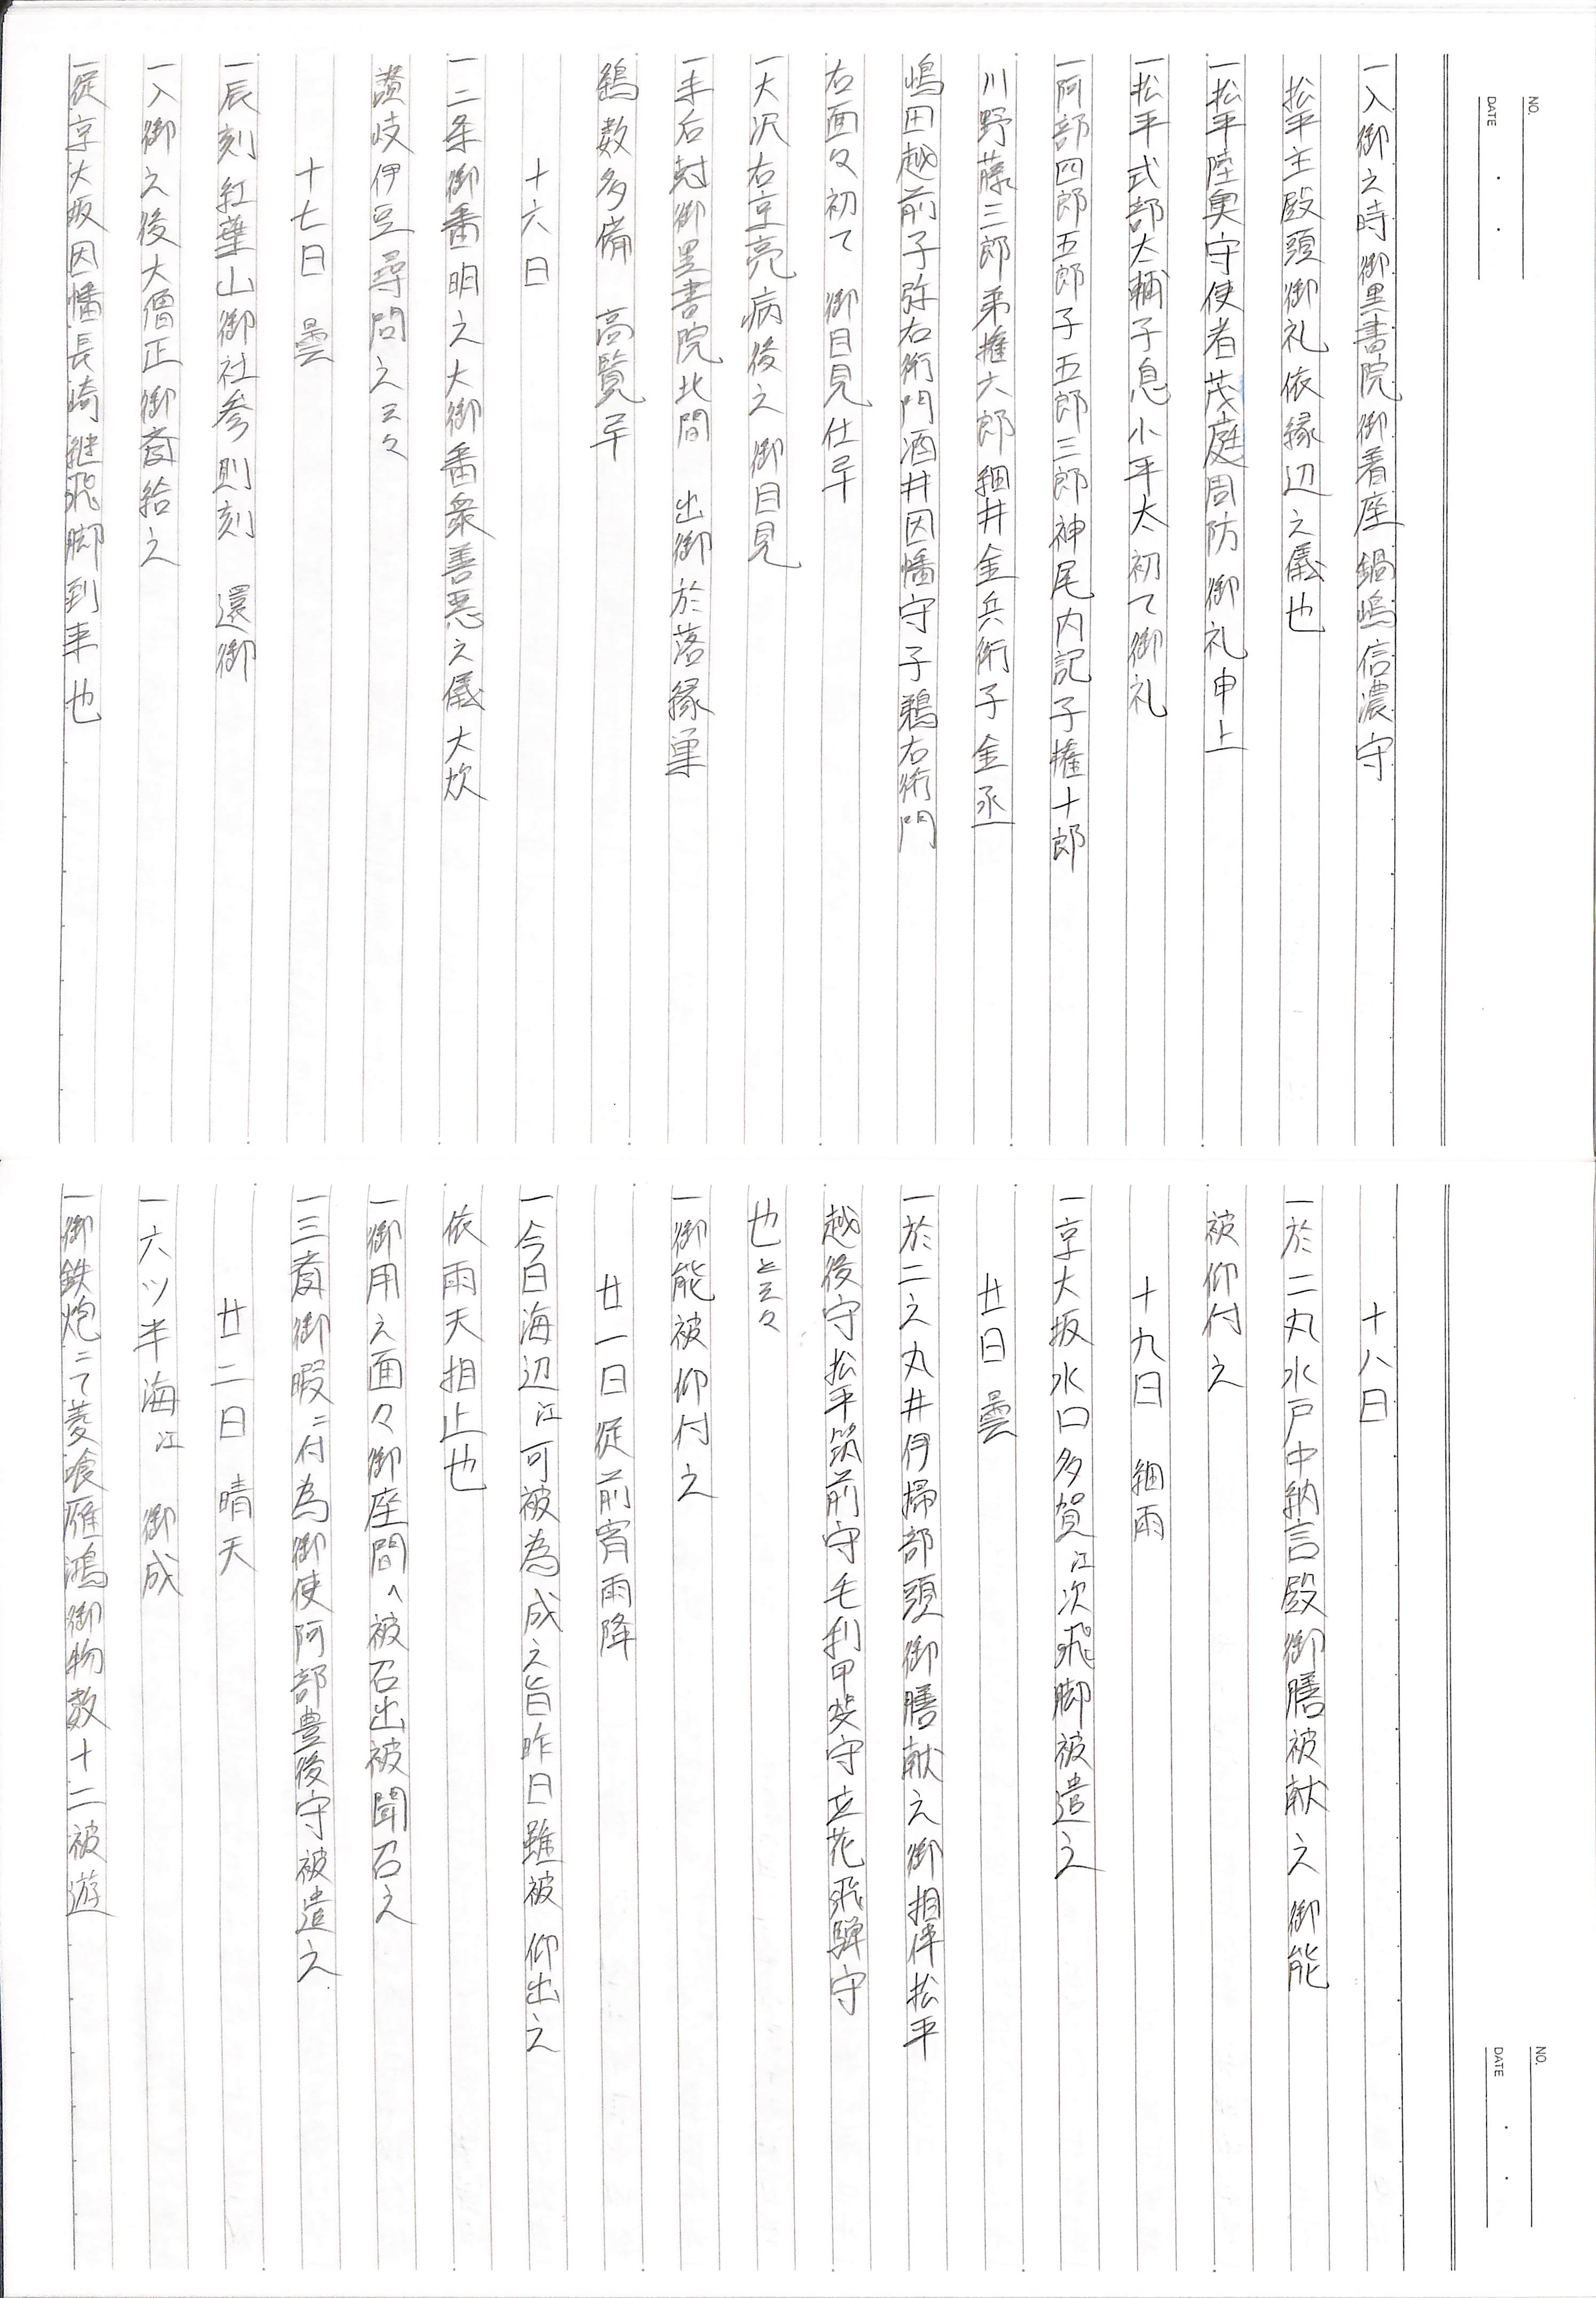 NO.
DATE
一入御之時御黒書院御着座鍋嶋信濃守
松平主殿頭御礼依縁辺之儀也
一松平陸奥守使者茂庭周防御礼申上
一松平式部太輔子息小平太初て御礼
一阿部四郎五郎子五郎三郎神尾内記子権十郎
川野藤三郎弟権六郎細井金兵衛子金丞
嶋田越前子弥右衛門酒井因幡守子鵜右衛門
右面々初て 御目見仕早
一大沢右京亮病後之 御目見
一未后尅御黒書院北間 出御於落縁巣
鶏数多備 高覧早
十六日
一二条御番明之大御番衆善悪之儀大炊
讃岐伊豆尋問之云々
十七日 曇
一辰刻紅葉山御社参則刻 還御
一入御之後大僧正御斎給之
一従京大坂因幡長崎継飛脚到来也
NO.
DATE
十八日
一於二丸水戸中納言殿御膳被献之 御能
被仰付之
十九日 細雨
一京大坂水口多賀江次飛脚被遣之
廿日 曇
一於二之丸井伊掃部頭御膳献之御相伴松平
越後守松平筑前守毛利甲斐守立花飛騨守
也と云々
一御能被仰付之
廿一日従前宵雨降
一今日海辺江可被為成之旨昨日雖被 仰出之
依雨天相止也
一御用之面々御座間へ被召出被聞召之
一三斎御暇ニ付為御使阿部豊後守被遣之
廿二日 晴天
一六ツ半海江 御成
一御鉄炮ニて菱喰雁鴻御物数十二被遊